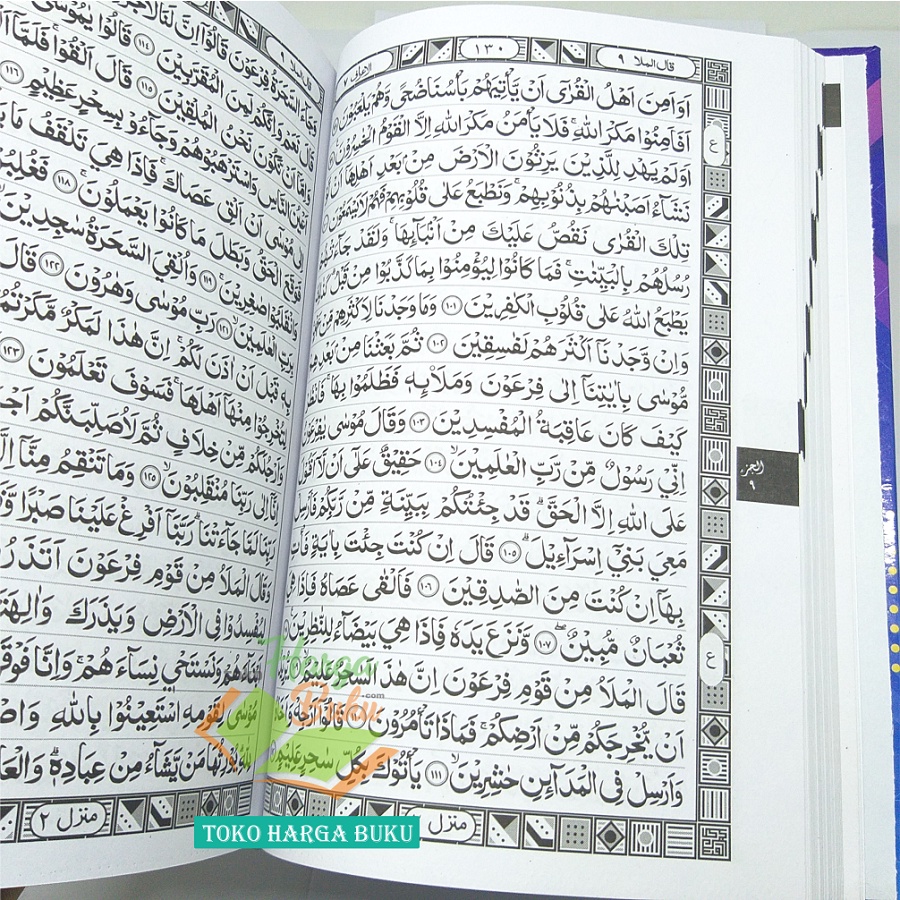 قال الملا ٩
١٣٠
الاعراف ٧
اَوَاَمِنَ اَهْلُ الْقُرٰٓى اَنْ يَّأْتِيَهُمْ بَأْسُنَا ضُحًى وَّهُمْ يَلْعَبُوْنَ
اَفَاَمِنُوْا مَكْرَ اللّٰهِ ۚ فَلَا يَأْمَنُ مَكْرَ اللّٰهِ اِلَّا الْقَوْمُ الْخٰسِرُوْنَ
اَوَلَمْ يَهْدِ لِلَّذِيْنَ يَرِثُوْنَ الْاَرْضَ مِنْۢ بَعْدِ اَهْلِهَآ اَنْ
نَشَآءُ اَصَبْنٰهُمْ بِذُنُوْبِهِمْ ۚ وَنَطْبَعُ عَلٰى قُلُوْبِهِمْ فَهُمْ لَا يَسْمَعُوْنَ
تِلْكَ الْقُرٰى نَقُصُّ عَلَيْكَ مِنْ اَنْۢبَآئِهَا ۚ وَلَقَدْ جَآءَتْهُمْ
رُسُلُهُمْ بِالْبَيِّنٰتِ ۚ فَمَا كَانُوْا لِيُؤْمِنُوْا بِمَا كَذَّبُوْا مِنْ قَبْلُ
يَطْبَعُ اللّٰهُ عَلٰى قُلُوْبِ الْكٰفِرِيْنَ ١٠١ وَمَا وَجَدْنَا لِاَكْثَرِهِمْ مِّنْ
وَاِنْ وَّجَدْنَآ اَكْثَرَهُمْ لَفٰسِقِيْنَ ١٠٢ ثُمَّ بَعَثْنَا مِنْۢ بَعْدِهِمْ
مُّوْسٰى بِاٰيٰتِنَآ اِلٰى فِرْعَوْنَ وَمَلَا۟ئِهٖ فَظَلَمُوْا بِهَا ۚ فَانْظُرْ
كَيْفَ كَانَ عَاقِبَةُ الْمُفْسِدِيْنَ ١٠٣ وَقَالَ مُوْسٰى يٰفِرْعَوْنُ
اِنِّيْ رَسُوْلٌ مِّنْ رَّبِّ الْعٰلَمِيْنَ ۙ ١٠٤ حَقِيْقٌ عَلٰٓى اَنْ لَّآ اَقُوْلَ
عَلَى اللّٰهِ اِلَّا الْحَقَّ ۗ قَدْ جِئْتُكُمْ بِبَيِّنَةٍ مِّنْ رَّبِّكُمْ فَاَرْسِلْ
مَعِيَ بَنِيْٓ اِسْرَآءِيْلَ ۗ ١٠٥ قَالَ اِنْ كُنْتَ جِئْتَ بِاٰيَةٍ فَأْتِ
بِهَآ اِنْ كُنْتَ مِنَ الصّٰدِقِيْنَ ١٠٦ فَاَلْقٰى عَصَاهُ فَاِذَا هِيَ
ثُعْبَانٌ مُّبِيْنٌ ۖ ١٠٧ وَّنَزَعَ يَدَهٗ فَاِذَا هِيَ بَيْضَآءُ لِلنّٰظِرِيْنَ
قَالَ الْمَلَاُ مِنْ قَوْمِ فِرْعَوْنَ اِنَّ هٰذَا لَسٰحِرٌ عَلِيْمٌ
اَنْ يُّخْرِجَكُمْ مِّنْ اَرْضِكُمْ ۚ فَمَاذَا تَأْمُرُوْنَ قَالُوْٓا اَرْجِهْ وَاَخَاهُ
وَاَرْسِلْ فِى الْمَدَآئِنِ حٰشِرِيْنَ ۙ ١١١ يَأْتُوْكَ بِكُلِّ سٰحِرٍ عَلِيْمٍ
منزل
ع
ع
الجزء
٩
قال الملا ٩
وَجَآءَ السَّحَرَةُ فِرْعَوْنَ قَالُوْٓا اِنَّ لَنَا لَاَجْرًا
قَالَ نَعَمْ وَاِنَّكُمْ لَمِنَ الْمُقَرَّبِيْنَ ١١٤ قَالُوْا يٰمُوْسٰٓى
نَّكُوْنَ نَحْنُ الْمُلْقِيْنَ ١١٥ قَالَ اَلْقُوْا ۚ فَلَمَّآ
اَعْيُنَ النَّاسِ وَاسْتَرْهَبُوْهُمْ وَجَآءُوْ بِسِحْرٍ عَظِيْمٍ ١١٦
اِلٰى مُوْسٰٓى اَنْ اَلْقِ عَصَاكَ ۚ فَاِذَا هِيَ تَلْقَفُ مَا
فَوَقَعَ الْحَقُّ وَبَطَلَ مَا كَانُوْا يَعْمَلُوْنَ ۚ ١١٨ فَغُلِبُوْا
وَانْقَلَبُوْا صٰغِرِيْنَ ۚ ١١٩ وَاُلْقِيَ السَّحَرَةُ سٰجِدِيْنَ
بِرَبِّ الْعٰلَمِيْنَ ۙ ١٢١ رَبِّ مُوْسٰى وَهٰرُوْنَ ١٢٢ قَالَ
بِهٖ قَبْلَ اَنْ اٰذَنَ لَكُمْ ۚ اِنَّ هٰذَا لَمَكْرٌ مَّكَرْتُمُوْهُ
لِتُخْرِجُوْا مِنْهَآ اَهْلَهَا ۚ فَسَوْفَ تَعْلَمُوْنَ ١٢٣
وَاَرْجُلَكُمْ مِّنْ خِلَافٍ ثُمَّ لَاُصَلِّبَنَّكُمْ
اِنَّآ اِلٰى رَبِّنَا مُنْقَلِبُوْنَ ۚ ١٢٥ وَمَا تَنْقِمُ مِنَّآ
رَبِّنَا لَمَّا جَآءَتْنَا ۗ رَبَّنَآ اَفْرِغْ عَلَيْنَا صَبْرًا
وَقَالَ الْمَلَاُ مِنْ قَوْمِ فِرْعَوْنَ اَتَذَرُ
لِيُفْسِدُوْا فِى الْاَرْضِ وَيَذَرَكَ وَاٰلِهَتَكَ
اَبْنَآءَهُمْ وَنَسْتَحْيٖ نِسَآءَهُمْ ۚ وَاِنَّا فَوْقَهُمْ
مُوْسٰى لِقَوْمِهِ اسْتَعِيْنُوْا بِاللّٰهِ
يُوْرِثُهَا مَنْ يَّشَآءُ مِنْ عِبَادِهٖ ۗ
منزل ٢
Harga
Buku
.com
TOKO HARGA BUKU